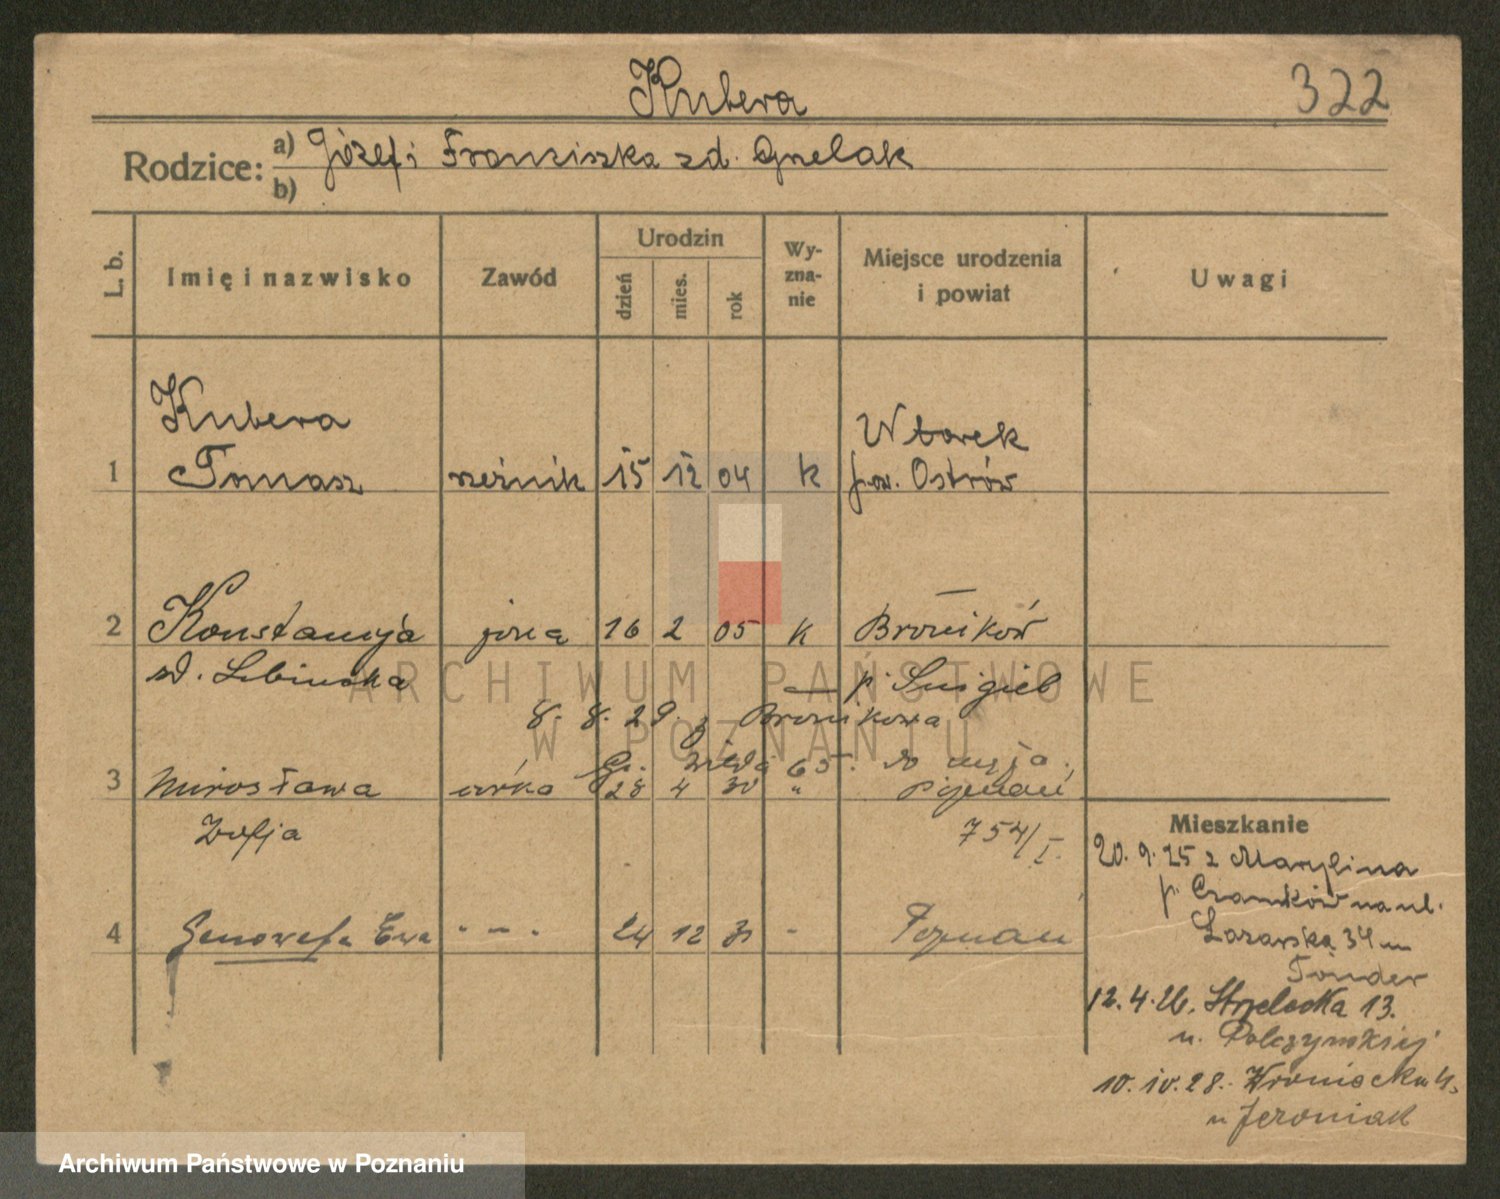 Kubera
322
Rodzice: a) Józef i Franciszka zd. Gnelak
b)
L. b.
Imię i nazwisko
Zawód
Urodzin
dzień
mies.
rok
Wy-
zna-
nie
Miejsce urodzenia
i powiat
Uwagi
Kubera
1 Tomasz rzeźnik 15 12 04 k
Wtorek
pow. Ostrów
2 Konstancja żona 16 2 05 k Broników
zd. Lubińska p. Śmigiel
8. 8. 29. z Bronikowa
Gr. Wilda 65. do męża.
3 Mirosława córka 28 4 30 " Poznań
Zofja 754/I.
4 Genowefa Ewa " - " 24 12 31 - Poznań
Mieszkanie
20. 9. 25 z Marylina
p. Czarnków na ul.
Łazarska 34 m
Tonder
12. 4. 26. Strzelecka 13.
u. Polczyńskiej
10. IV. 28. Wroniecka
u Jeroniak
ARCHIWUM PAŃSTWOWE
W POZNANIU
Archiwum Państwowe w Poznaniu